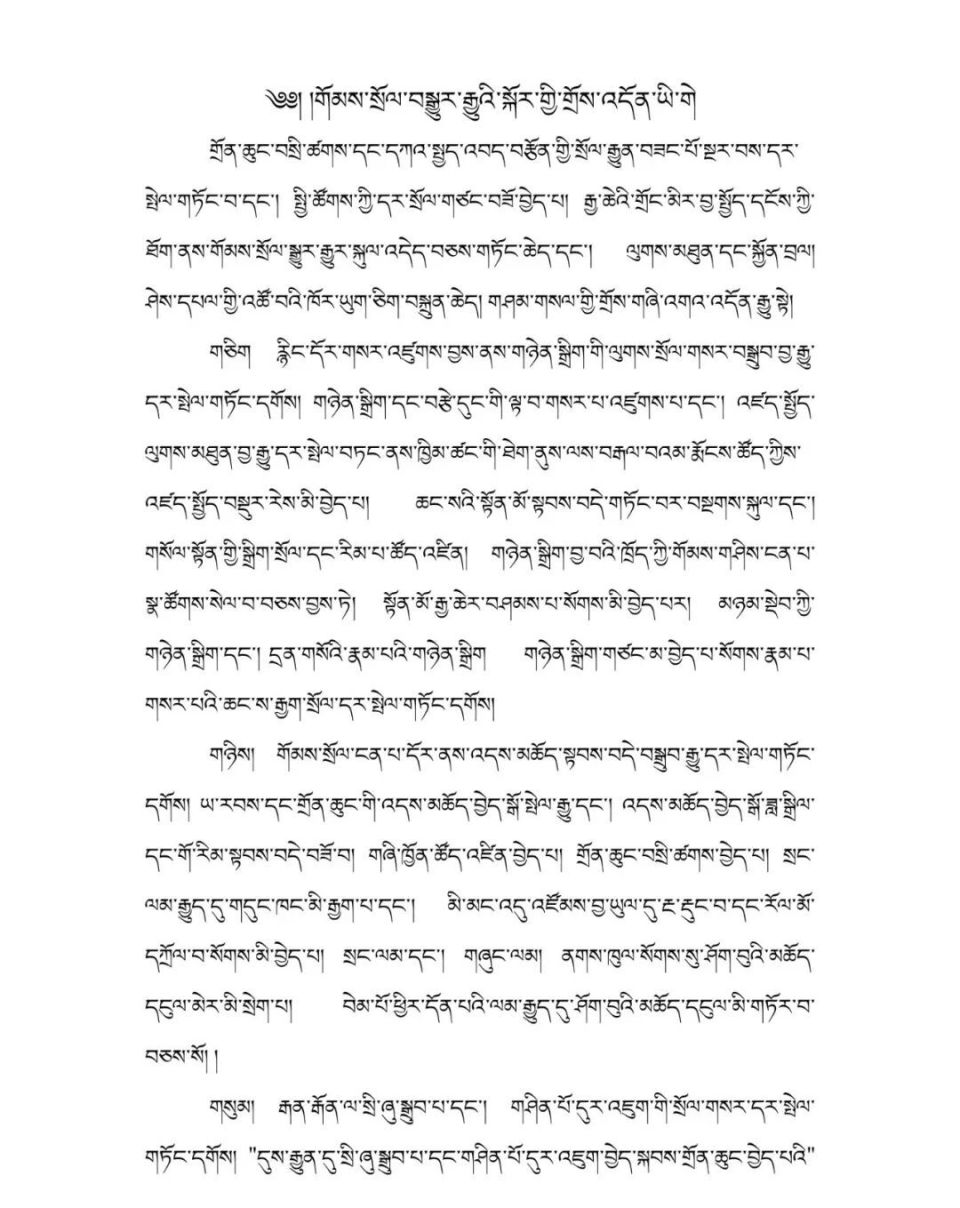 ༄༅། །གོམས་སྲོལ་བསྒྱུར་རྒྱུའི་སྐོར་གྱི་གྲོས་འདོན་ཡི་གེ
གྲོན་ཆུང་བསྲི་ཚགས་དང་དཀའ་སྤྱད་འབད་བརྩོན་གྱི་སྲོལ་རྒྱུན་བཟང་པོ་སྔར་བས་དར་
སྤེལ་གཏོང་བ་དང་། སྤྱི་ཚོགས་ཀྱི་དར་སྲོལ་གཙང་བཟོ་བྱེད་པ། རྒྱ་ཆེའི་གྲོང་མིར་བྱ་སྤྱོད་དངོས་ཀྱི་
ཐོག་ནས་གོམས་སྲོལ་སྒྱུར་རྒྱུར་སྐུལ་འདེད་བཅས་གཏོང་ཆེད་དང་། ལུགས་མཐུན་དང་སྐྱོན་བྲལ།
ཤེས་དཔལ་གྱི་འཚོ་བའི་ཁོར་ཡུག་ཅིག་བསྐྲུན་ཆེད། གཤམ་གསལ་གྱི་གྲོས་གཞི་འགའ་འདོན་རྒྱུ་སྟེ།
གཅིག རྙིང་དོར་གསར་འཛུགས་བྱས་ནས་གཉེན་སྒྲིག་གི་ལུགས་སྲོལ་གསར་བསྒྲུབ་བྱ་རྒྱུ་
དར་སྤེལ་གཏོང་དགོས། གཉེན་སྒྲིག་དང་བརྩེ་དུང་གི་ལྟ་བ་གསར་པ་འཛུགས་པ་དང་། འཛད་སྤྱོད་
ལུགས་མཐུན་བྱ་རྒྱུ་དར་སྤེལ་བཏང་ནས་ཁྱིམ་ཚང་གི་ཐེག་ནུས་ལས་བརྒལ་བའམ་རྨོངས་ཚོད་ཀྱིས་
འཛད་སྤྱོད་བསྡུར་རེས་མི་བྱེད་པ། ཆང་སའི་སྟོན་མོ་སྟབས་བདེ་གཏོང་བར་བསྔགས་སྐུལ་དང་།
གསོལ་སྟོན་གྱི་སྒྲིག་སྲོལ་དང་རིམ་པ་ཚོད་འཛིན། གཉེན་སྒྲིག་བྱ་བའི་ཁྲོད་ཀྱི་གོམས་གཤིས་ངན་པ་
སྣ་ཚོགས་སེལ་བ་བཅས་བྱས་ཏེ། སྟོན་མོ་རྒྱ་ཆེར་བཤམས་པ་སོགས་མི་བྱེད་པར། མཉམ་སྡེབ་ཀྱི་
གཉེན་སྒྲིག་དང་། དྲན་གསོའི་རྣམ་པའི་གཉེན་སྒྲིག གཉེན་སྒྲིག་གཙང་མ་བྱེད་པ་སོགས་རྣམ་པ་
གསར་པའི་ཆང་ས་རྒྱག་སྲོལ་དར་སྤེལ་གཏོང་དགོས།
གཉིས། གོམས་སྲོལ་ངན་པ་དོར་ནས་འདས་མཆོད་སྟབས་བདེ་བསྒྲུབ་རྒྱུ་དར་སྤེལ་གཏོང་
དགོས། ཡ་རབས་དང་གྲོན་ཆུང་གི་འདས་མཆོད་བྱེད་སྒོ་སྤེལ་རྒྱུ་དང་། འདས་མཆོད་བྱེད་སྒོ་ཟླ་སྒྲིལ་
དང་གོ་རིམ་སྟབས་བདེ་བཟོ་བ། གཞི་ཁྱོན་ཚོད་འཛིན་བྱེད་པ། གྲོན་ཆུང་བསྲི་ཚགས་བྱེད་པ། སྲང་
ལམ་རྒྱུད་དུ་གདུང་ཁང་མི་རྒྱག་པ་དང་། མི་མང་འདུ་འཛོམས་བྱ་ཡུལ་དུ་རྔ་རྡུང་བ་དང་རོལ་མོ་
དཀྲོལ་བ་སོགས་མི་བྱེད་པ། སྲང་ལམ་དང་། གཞུང་ལམ། ནགས་ཁུལ་སོགས་སུ་ཤོག་བུའི་མཆོད་
དངུལ་མེར་མི་སྲེག་པ། བེམ་པོ་ཕྱིར་དོན་པའི་ལམ་རྒྱུད་དུ་ཤོག་བུའི་མཆོད་དངུལ་མི་གཏོར་བ་
བཅས་སོ། །
གསུམ། རྒན་རྒོན་ལ་སྲི་ཞུ་སྒྲུབ་པ་དང་། གཤིན་པོ་དུར་འཇུག་གི་སྲོལ་གསར་དར་སྤེལ་
གཏོང་དགོས། "དུས་རྒྱུན་དུ་སྲི་ཞུ་སྒྲུབ་པ་དང་གཤིན་པོ་དུར་འཇུག་བྱེད་སྐབས་གྲོན་ཆུང་བྱེད་པའི"